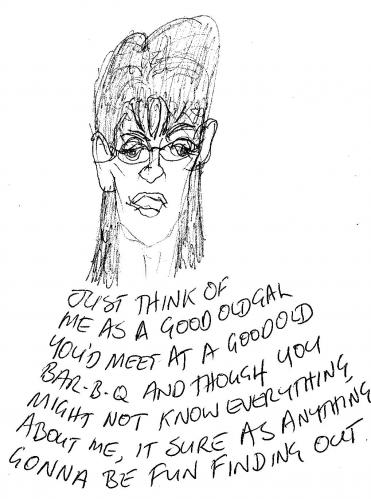 JUST THINK OF
ME AS A GOOD OLD GAL
YOU'D MEET AT A GOOD OLD
BAR-B-Q AND THOUGH YOU
MIGHT NOT KNOW EVERYTHING
ABOUT ME, IT SURE AS ANYTHING
GONNA BE FUN FINDING OUT.